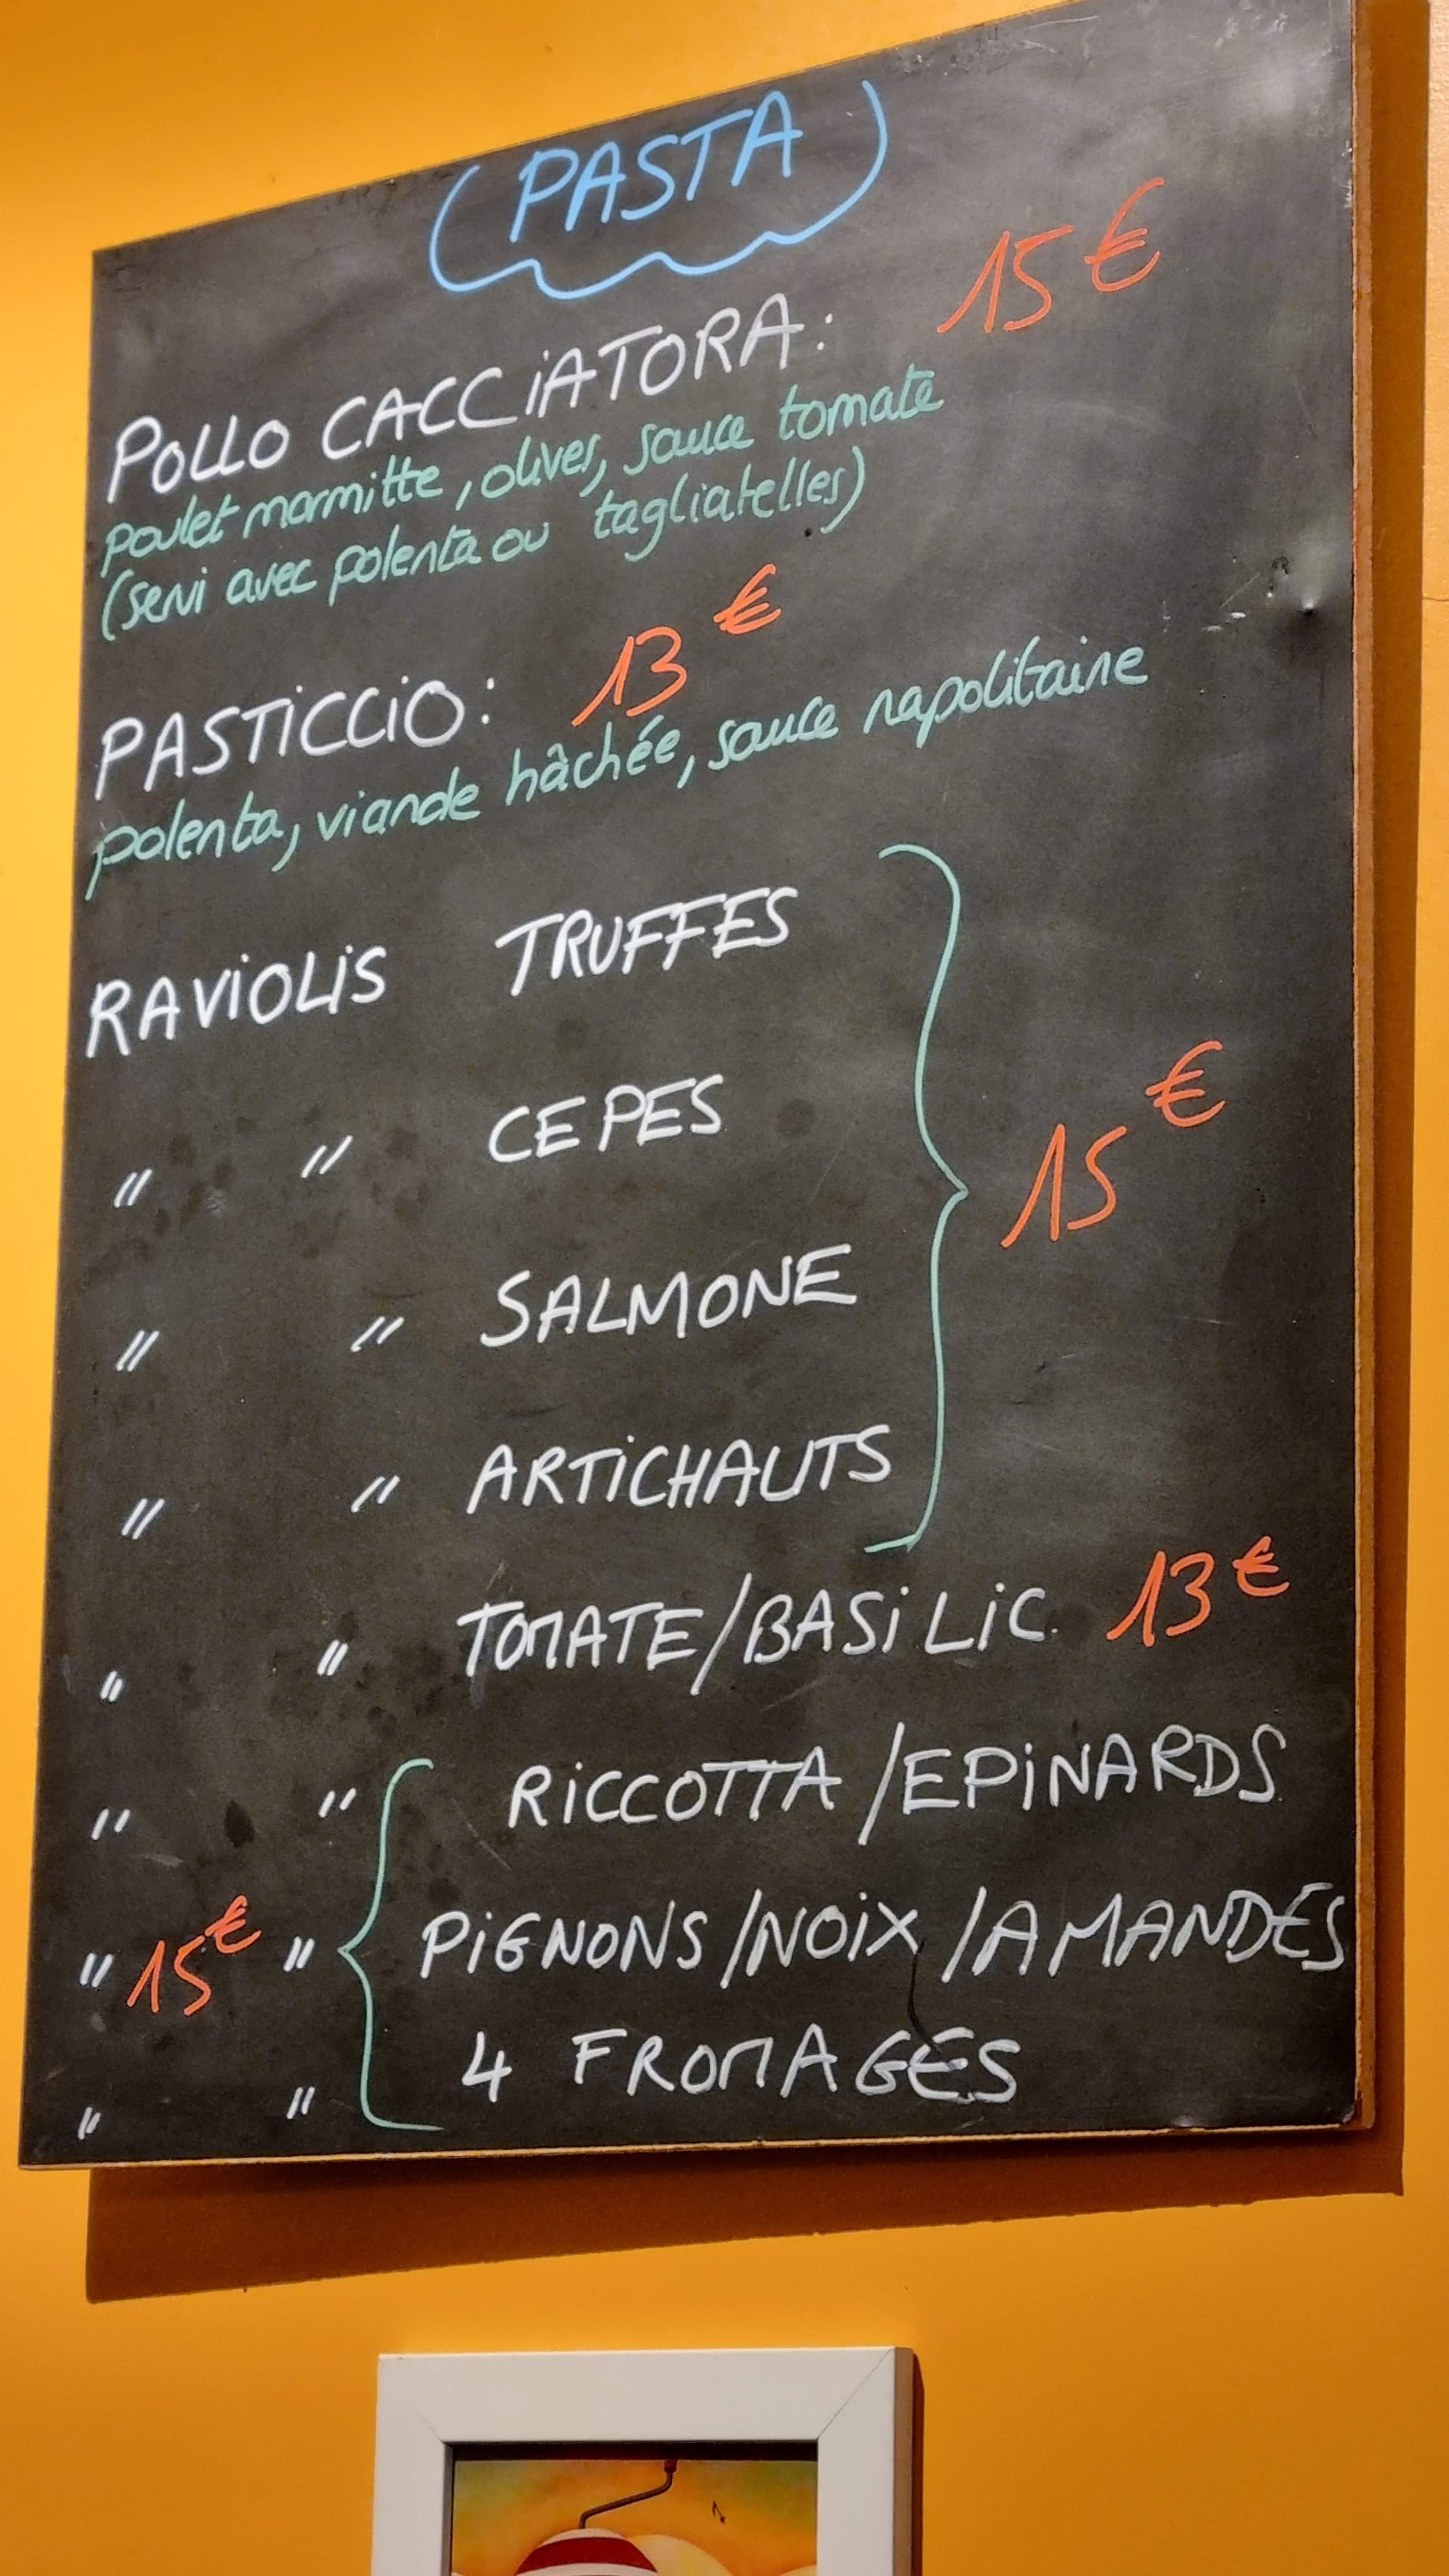 (PASTA)
POLLO CACCIATORA: 15€
poulet marmitte, olives, sauce tomate
(servi avec polenta ou tagliatelles)
PASTICCIO: 13€
polenta, viande hâchée, sauce napolitaine
RAVIOLIS TRUFFES
" " CEPES
15€
" " SALMONE
" " ARTICHAUTS
" " TOMATE/BASILIC 13€
" " RICCOTTA/EPINARDS
" 15€ " PIGNONS/NOIX/AMANDES
" " 4 FROMAGES